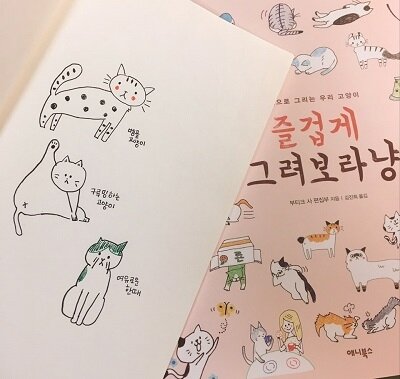 얼룩
고양이
그루밍하는
고양이
여유로운
한때
으로 그리는 우리 고양이
즐겁게
그려보라냥
부티크 사 편집부 지음 | 김진희 옮김
애니북스